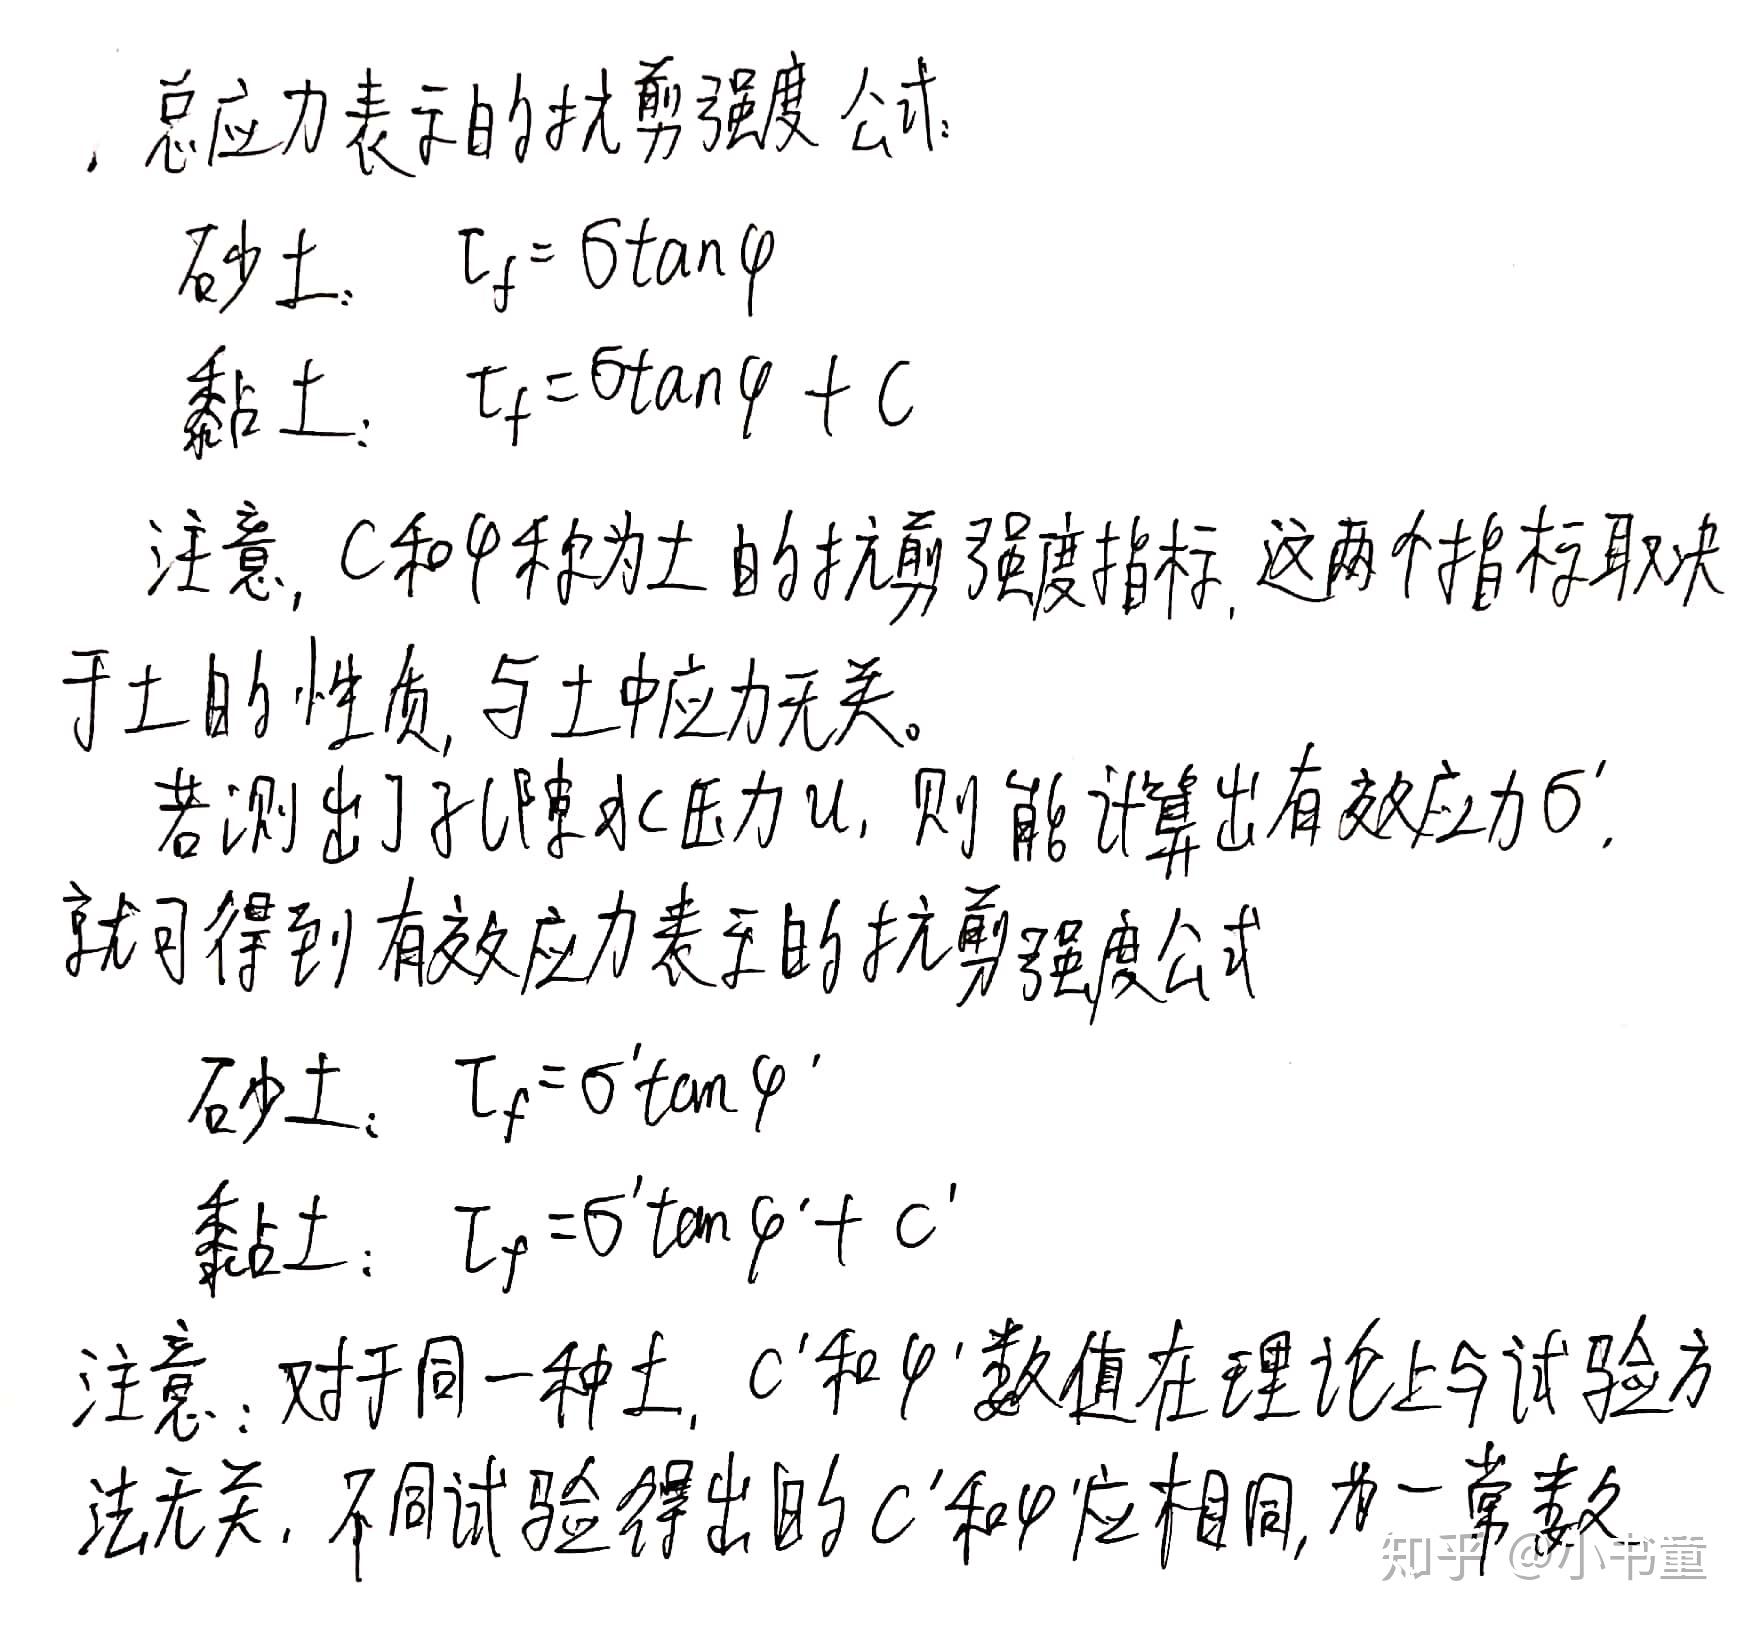 总应力表示的抗剪强度公式:
砂土: τf=σtanφ
黏土: τf=σtanφ + C
注意, C和φ称为土的抗剪强度指标, 这两个指标取决
于土的性质, 与土中应力无关。
若测出了孔隙水压力u, 则能计算出有效应力σ',
就可得到有效应力表示的抗剪强度公式
砂土: τf=σ'tanφ'
黏土: τf=σ'tanφ'+ C'
注意: 对于同一种土, C'和φ'数值在理论上与试验方
法无关, 不同试验得出的C'和φ'应相同, 为一常数
知乎 @小书童